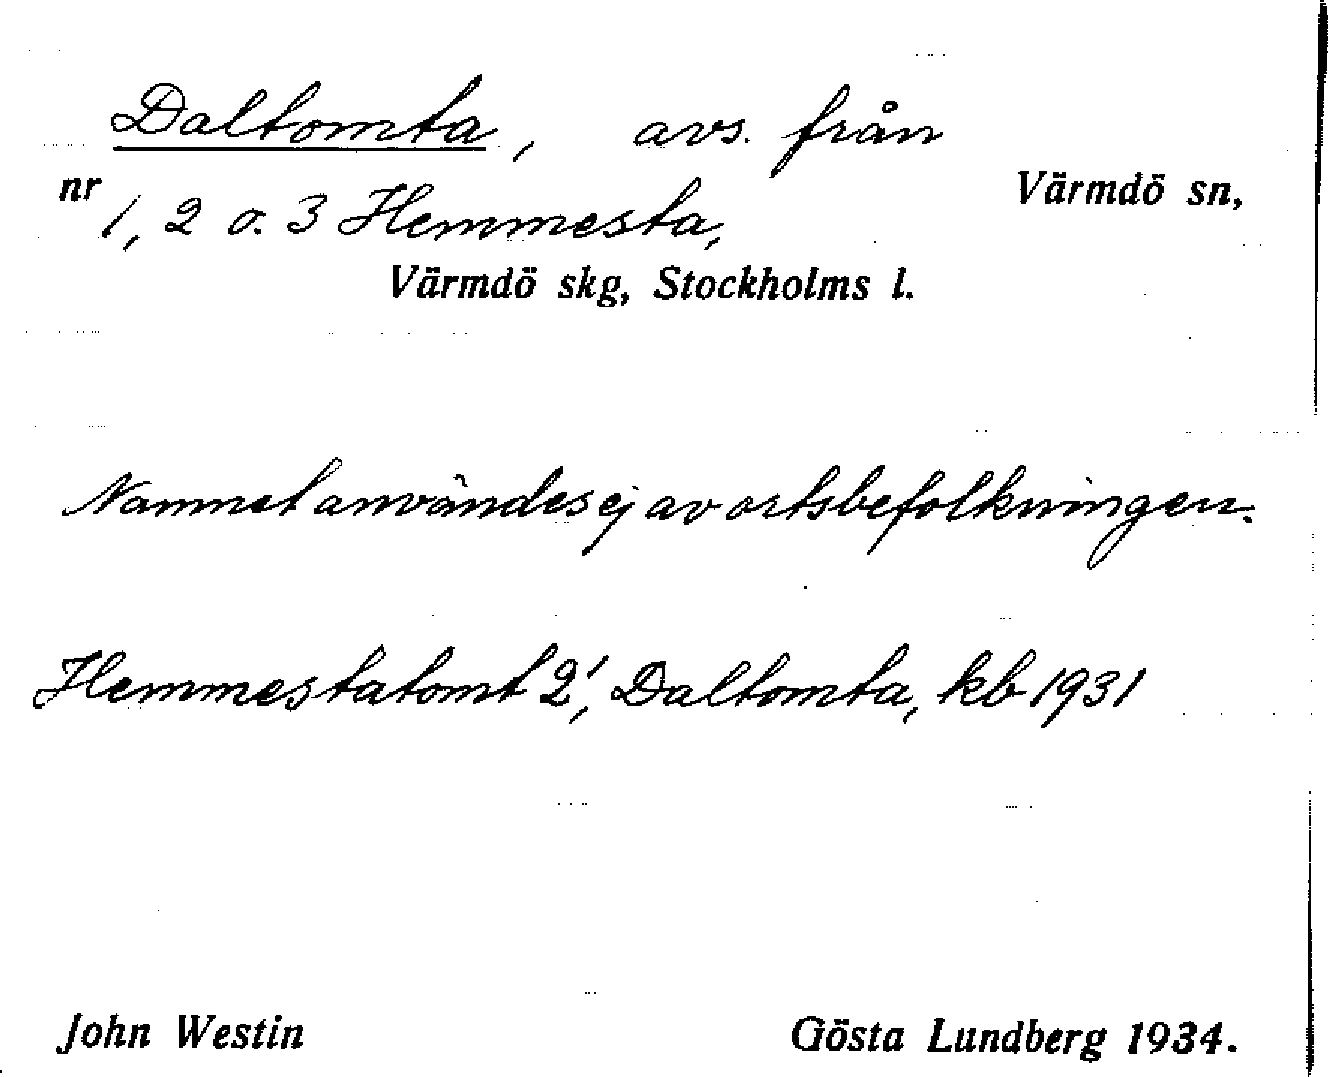 Daltomta, avs. från
nr 1, 2 o. 3 Hemmesta, Värmdö sn,
Värmdö skg, Stockholms l.
Namnet användes ej av ortsbefolkningen.
Hemmestatomt 2', Daltomta, kb 1931
John Westin Gösta Lundberg 1934.